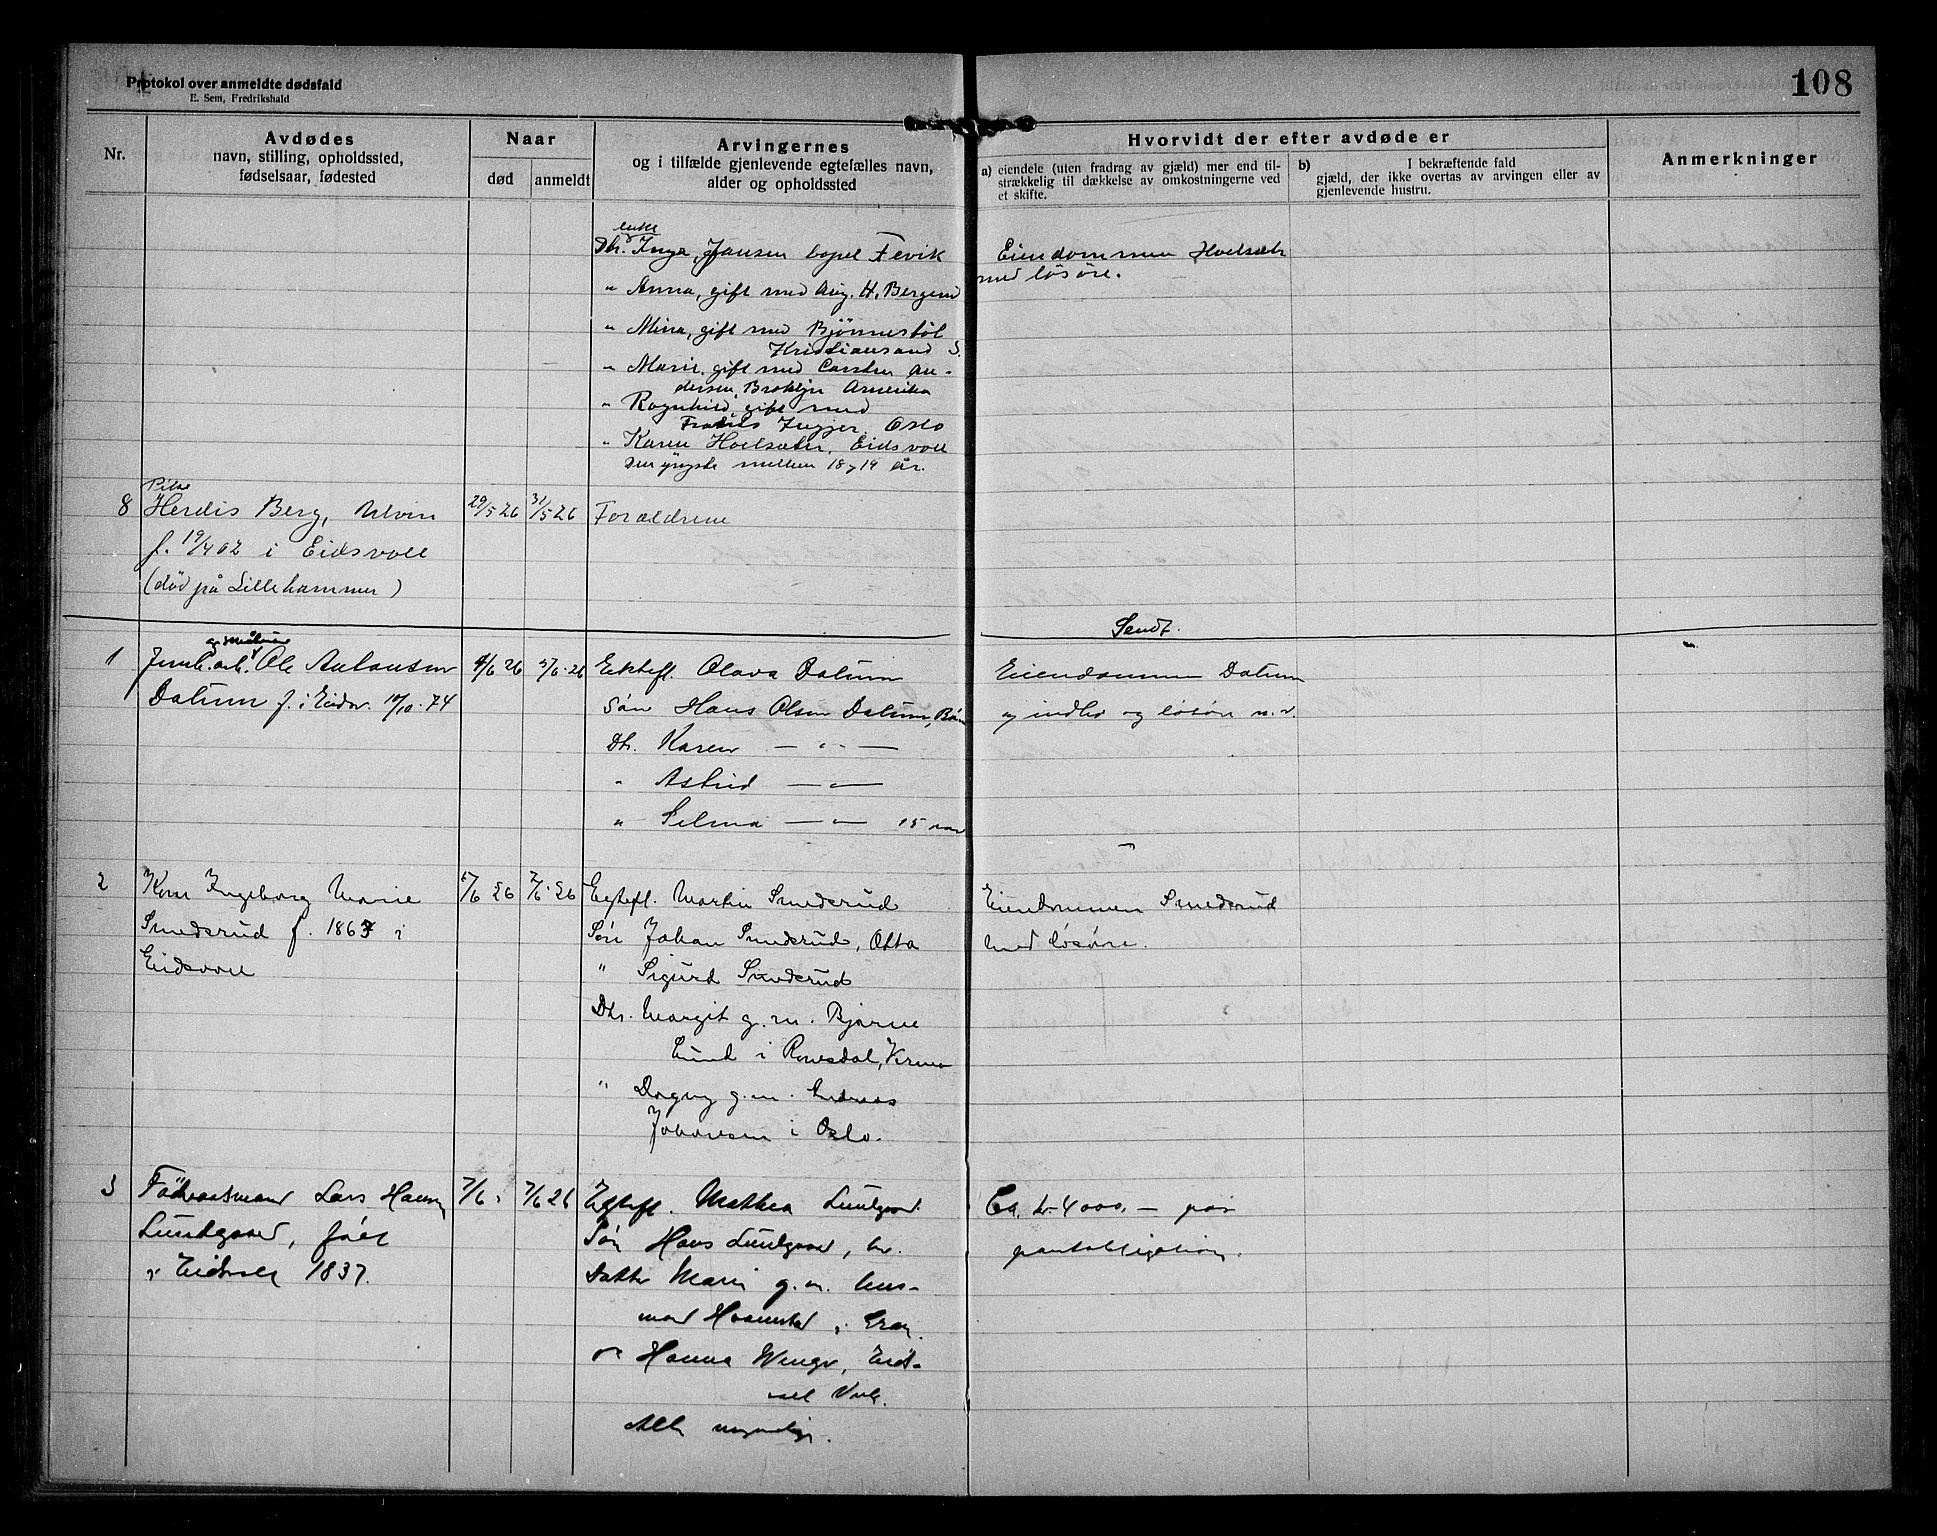 Protokol over anmeldte dødsfald
E. Sem, Fredrikshald
108
Nr.
Avdødes
navn, stilling, opholdssted,
fødselsaar, fødested
Naar
død
anmeldt
Arvingernes
og i tilfælde gjenlevende egtefælles navn,
alder og opholdssted
Hvorvidt der efter avdøde er
a) eiendele (uten fradrag av gjæld) mer end til-
strækkelig til dækkelse av omkostningerne ved
et skifte.
b) I bekræftende fald
gjæld, der ikke overtas av arvingen eller av
gjenlevende hustru.
Anmerkninger
enke
Dtr. Inga, Jansen bopel Fevik
" Anna, gift med Aug. H. Bergend
" Mina, gift med Bjønnestøl
Kristiansand S.
" Marie, gift med Carsten An-
dersen, Broklyn Amerika
" Ragnhild, gift med
Ingjer, Oslo
" Karen Hoelsæter, Eidsvoll
den yngste mellem 18 og 19 år.
Eiendommen Hoelsæt
med løsøre.
8
Pike
Herdis Berg, Ulvin
f. 19/4 02 i Eidsvoll
(død på Lillehammer)
29/5 26
31/5 26
Forældrene
Sendt.
1
Jernb.arb. Ole Antonsen
Dalum f. i Eidsv. 10/10. 74
4/6 26
5/6. 26
Ektefl. Olava Dalum
Søn Hans Olsen Dalum, Bøn
Dtr. Karen — " —
" Astrid — " —
" Selma — " — 15 aar
Eiendommen Dalum
og indbo og løsøre m. v.
2
Kone Ingeborg Marie
Smedsrud f. 1867 i
Eidsvoll
6/6 26
7/6. 26
Egtefl. Martin Smedsrud
Søn Johan Smedsrud, Otta
" Sigurd Smedsrud
Dtr. Margit g. m. Bjarne
Lund i Romsdal,
" Dagny g. m. Andreas
Johansen i Oslo.
Eiendommen Smedsrud
med løsøre.
3
Føderaadsmand Lars Hansen
Lundgaard, født
i Eidsvoll 1837.
7/6.
7/6 26
Egtefl. Mathea Lundgaard.
Søn Hans Lundgaard, hr.
Datter Marie g. m. hus-
mand i Gran.
" Hanna Wenger, Eids-
voll Verk.
Alle myndige.
Ca. kr 4000,— paa
pantobligation.